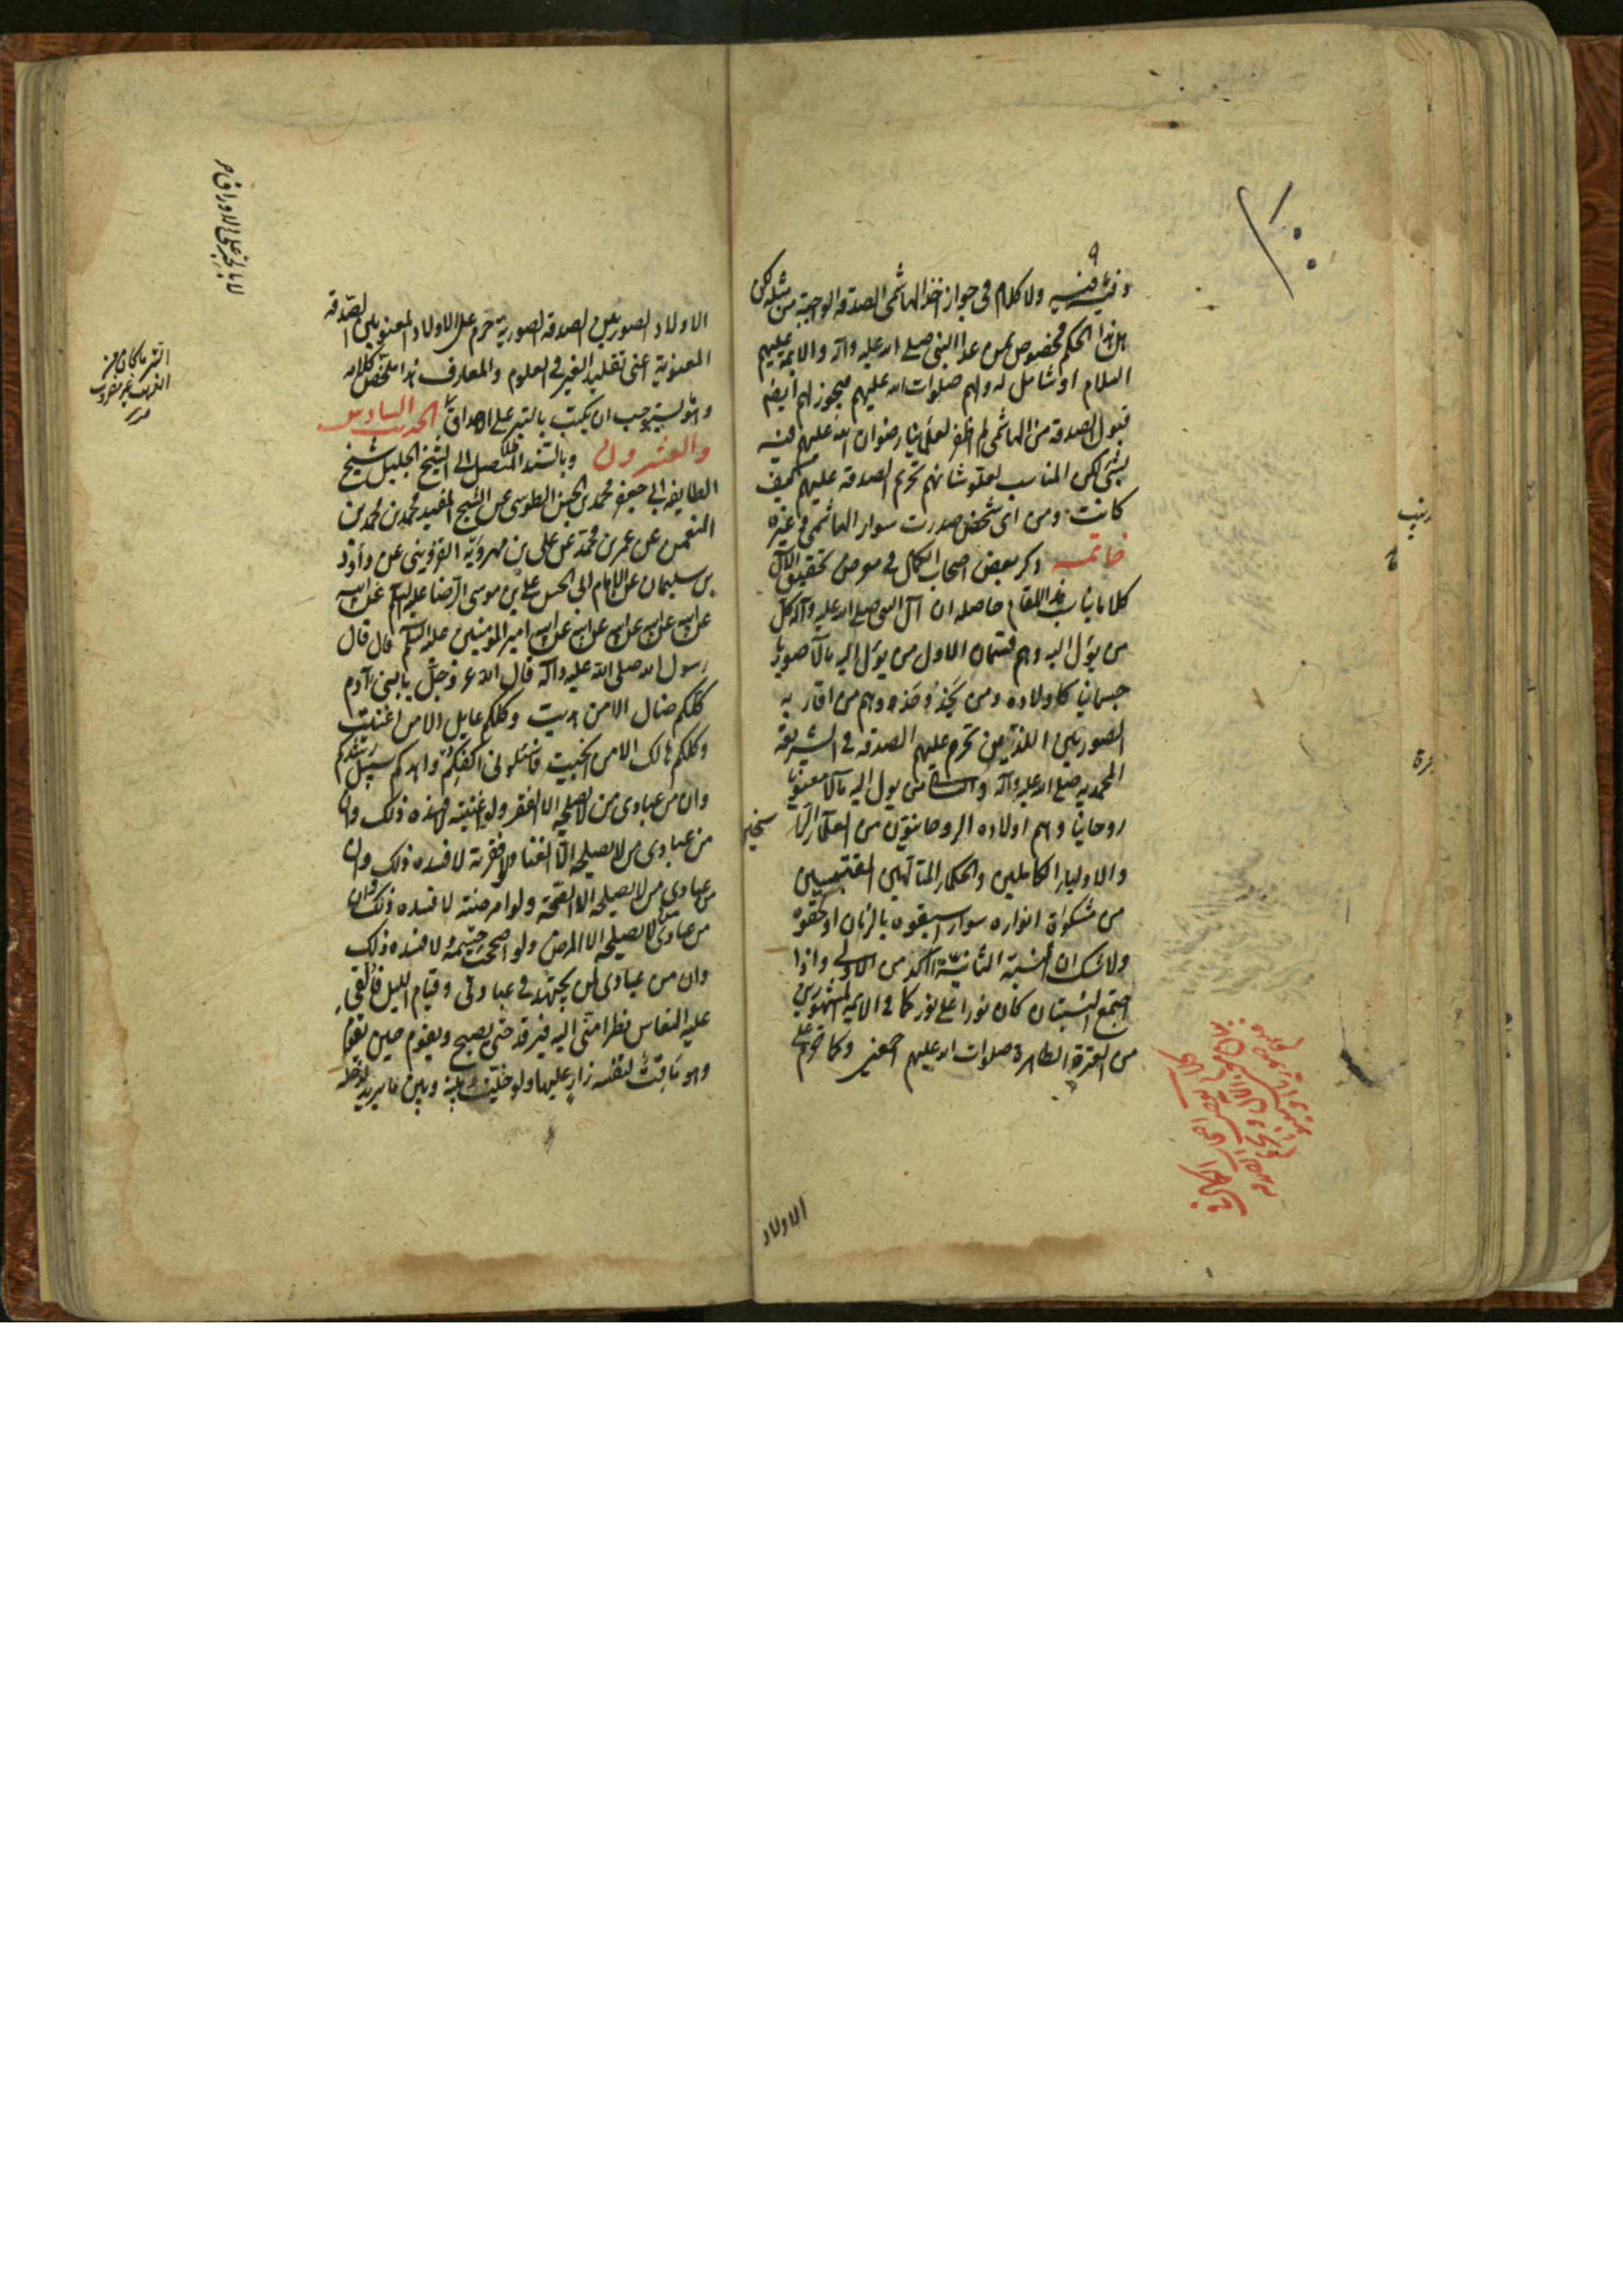 وفيه ما فيه ولا كلام فى جواز اخذ الهاشمى الصدقة الواجبة من مثله لكن
هل هذا الحكم مخصوص بمن عدا النبى صلى الله عليه واله والايمة عليهم
السلام او شامل له ولهم صلوات الله عليهم فيجوز لهم ايضا
قبول الصدقة من الهاشمى لم اظفر لعلمائنا رضوان الله عليهم فيه
بشئ لكن المناسب لعلو شانهم تحريم الصدقة عليهم كيف
كانت ومن اى شخص صدرت سواء الهاشمى وغيره
خاتمه ذكر بعض اصحاب الكمال فى تحقيق الآل
كلاما يناسب هذا المقام حاصله ان آل النبى صلى الله عليه وآله كل
من يؤل اليه وهم قسمان الاول من يؤل اليه مآلا صوريا
جسمانيا كاولاده ومن يحذو حذوهم من اقاربه
الصوريين الذين تحرم عليهم الصدقة فى الشريعة
المحمدية صلى الله عليه وآله والثانى من يول اليه مآلا معنويا
روحانيا وهم اولاده الروحانيون من العلماء الراسخين
والاولياء الكاملين والحكماء المتألهين المقتبسين
من مشكوة انواره سواء سبقوه بالزمان او لحقوه
ولا شك ان النسبة الثانية آكد من الاولى واذا
اجتمع النسبتان كان نورا على نور كما فى الايمة المشهورين
من العترة الطاهرة صلوات الله عليهم اجمعين وكما حرم على
الاولاد
الاولاد الصوريين الصدقة الصورية حرم على الاولاد المعنويين الصدقة
المعنوية اعنى تقليد الغير فى العلوم والمعارف هذا ملخص كلامه
وهو يستوجب ان يكتب بالتبر على الاحداق الحديث السادس
والعشرون وبالسند المتصل الى الشيخ الجليل شيخ
الطايفة ابى جعفر محمد بن الحسن الطوسى عن الشيخ المفيد محمد بن محمد بن
النعمن عن عمر بن محمد عن على بن مهروية القزوينى عن داود
بن سليمان عن الامام ابى الحسن على بن موسى الرضا عليه السلم عن ابيه
عن ابيه عن ابيه عن ابيه عن ابيه امير المؤمنين عليه السلم قال قال
رسول الله صلى الله عليه وآله قال الله عز وجل يا بنى آدم
كلكم ضال الا من هديت وكلكم عايل الا من اغنيت
وكلكم هالك الا من انجيت فاسئلونى اكفكم واهدكم سبيل رشدكم
وان من عبادى من لا يصلحه الا الفقر ولو اغنيته لافسده ذلك وان
من عبادى من لا يصلحه الا الغنا ولو افقرته لافسده ذلك وان
من عبادى من لا يصلحه الا الصحة ولو امرضته لافسده ذلك وان
من عبادى من لا يصلحه الا المرض ولو اصححت جسمه لافسده ذلك
وان من عبادى لمن يجتهد فى عبادتى وقيام الليل فالقى
عليه النعاس نظرا منى اليه فيرقد حتى يصبح ويقوم حين يقوم
وهو ماقت لنفسه زار عليها ولو خليت بينه وبين ما يريد لدخله